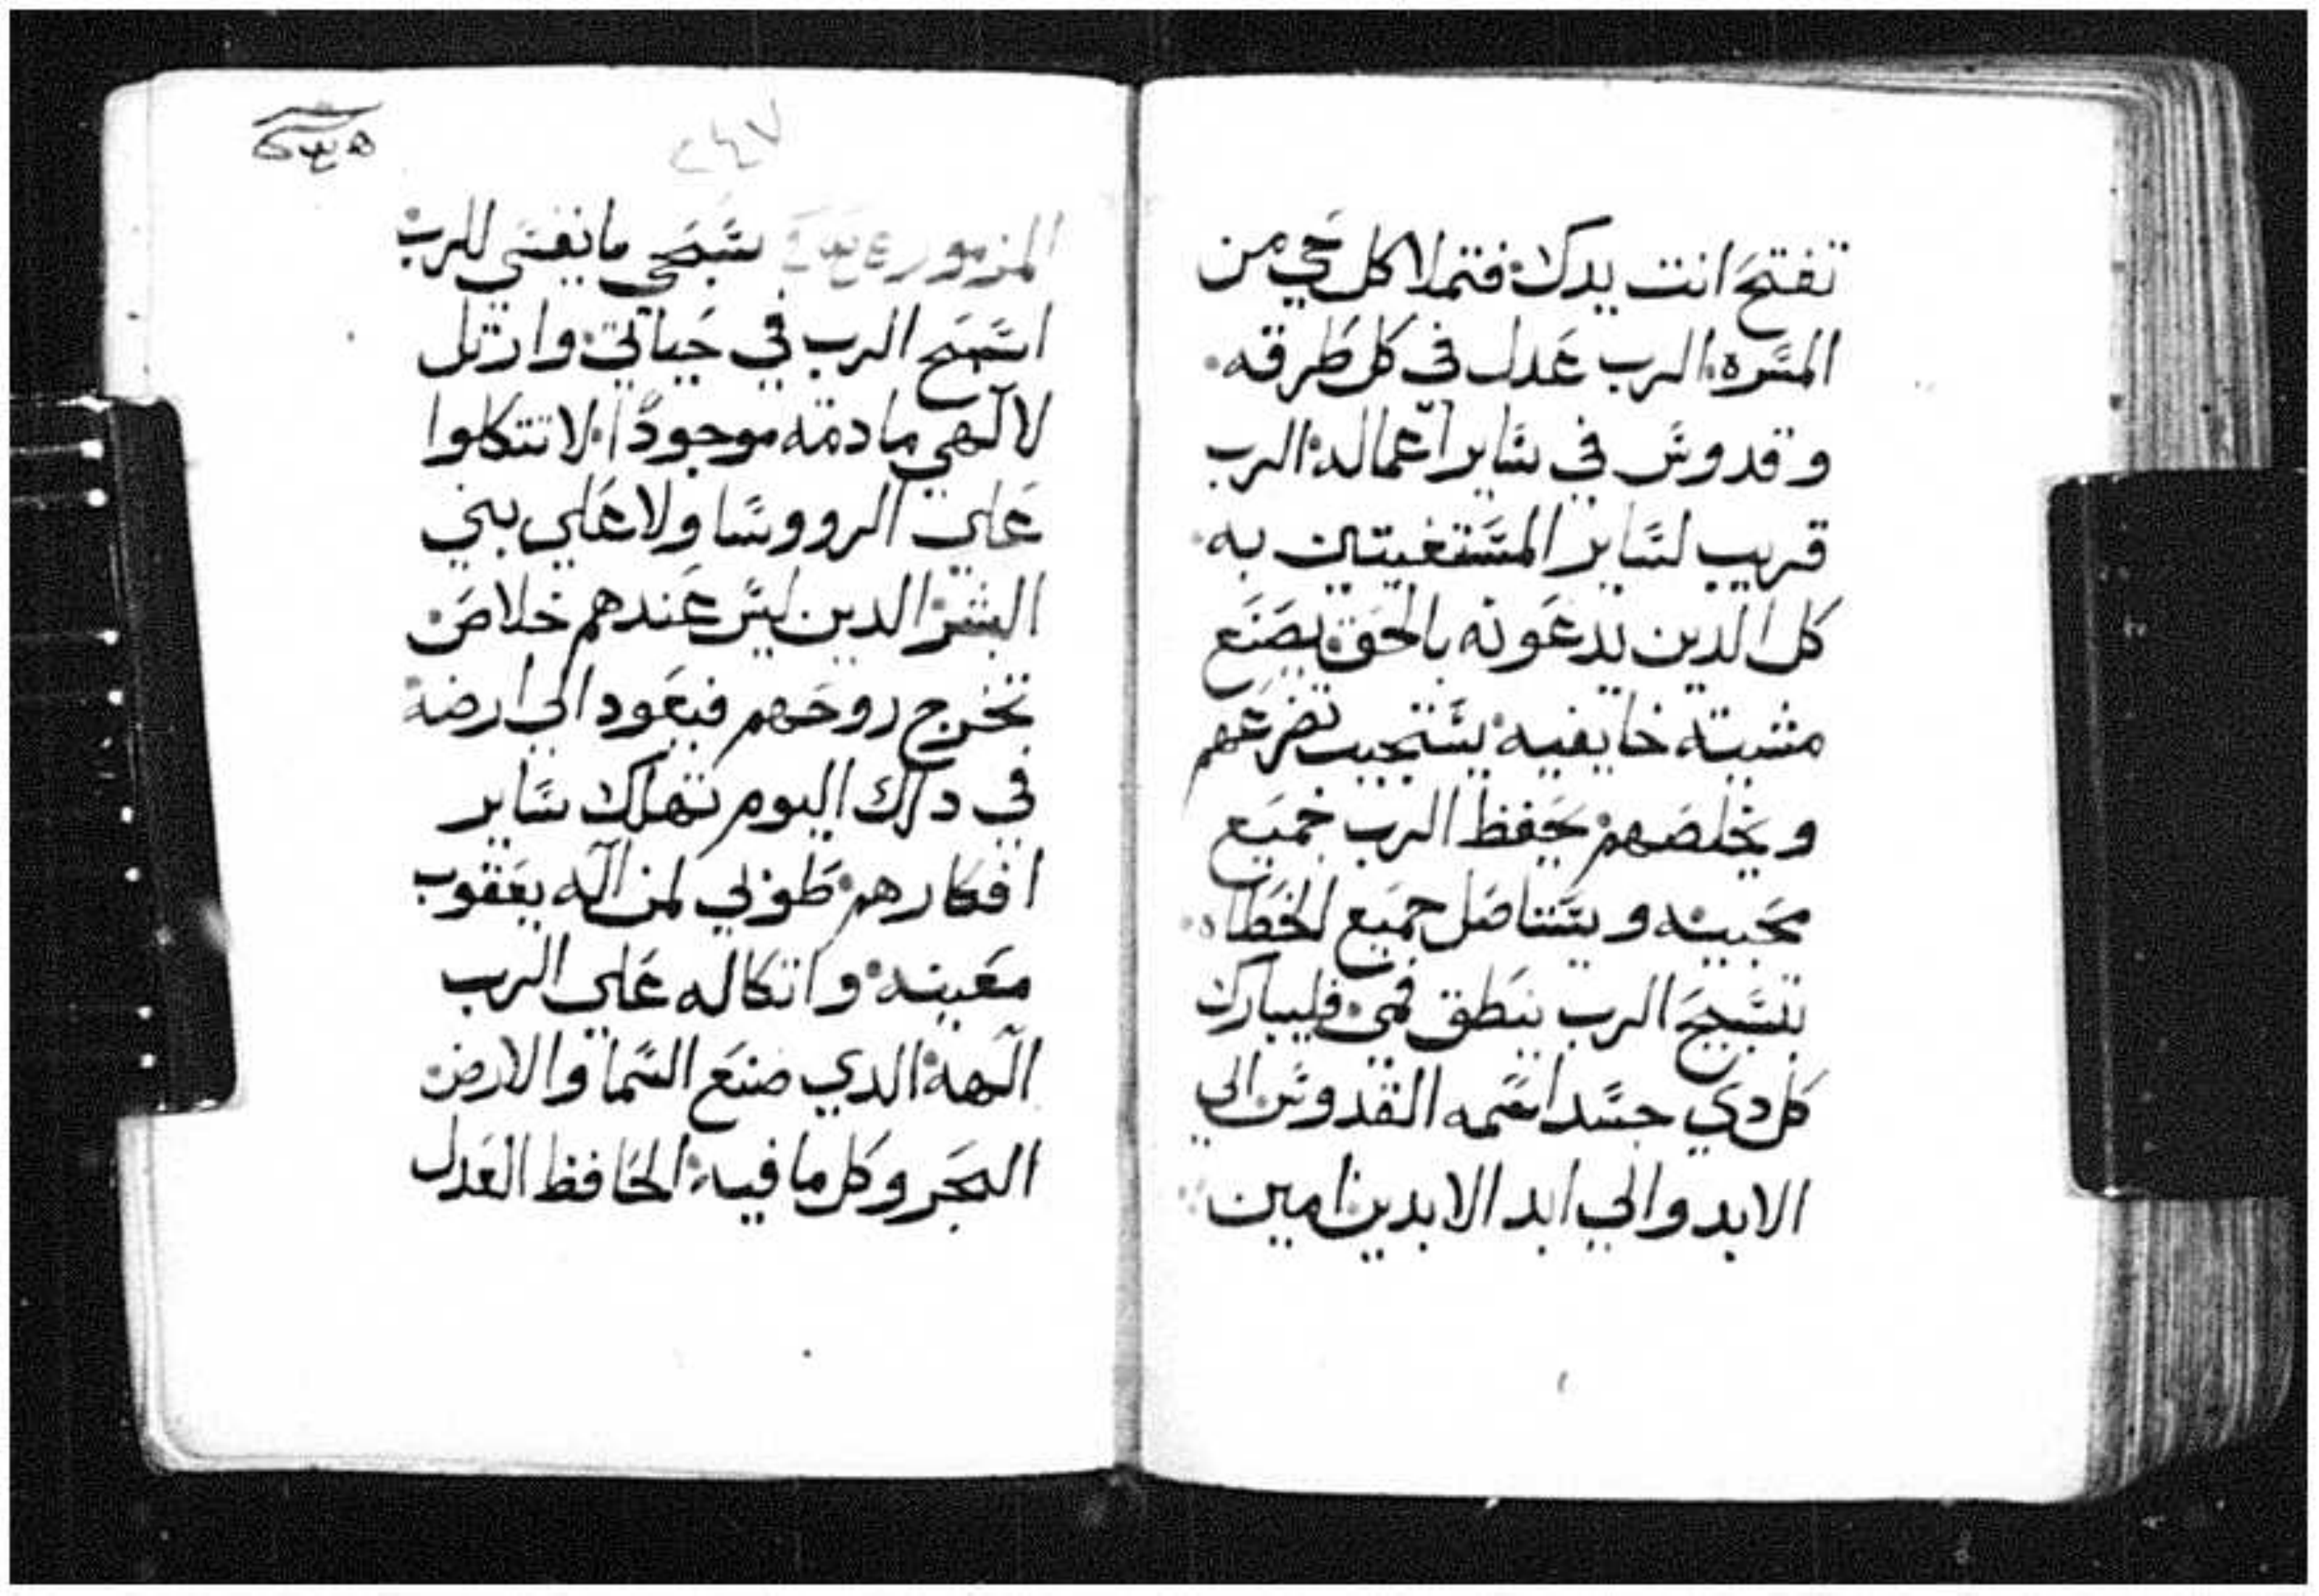 تفتح انت يدك فتملا كل حي من
المسره الرب عدل في كل طرقه
وقدوس في ساير اعماله الرب
قريب لساير المستغيتين به
كل الدين يدعونه بالحق يصنع
مشيته خايفيه يستجيب تضرعهم
ويخلصهم يحفظ الرب جميع
محبينه ويستاصل جميع الخطاه
بتسبيح الرب ينطق فمي فليبارك
كل دي جسد اسمه القدوس الي
الابد والي ابد الابدين امين
٢٤٧
المزمور سبحي يا نفسي للرب
اسبح الرب في حياتي وارتل
لالهي ما دمة موجودا لا تتكلوا
علي الرووسا ولا علي بني
البشر الدين ليس عندهم خلاص
تخرج روحهم فيعود الي ارضه
في دلك اليوم تهلك ساير
افكارهم طوبي لمن اله يعقوب
معينه واتكاله علي الرب
الهه الدي صنع السما والارض
البحر وكل ما فيه الحافظ العدل